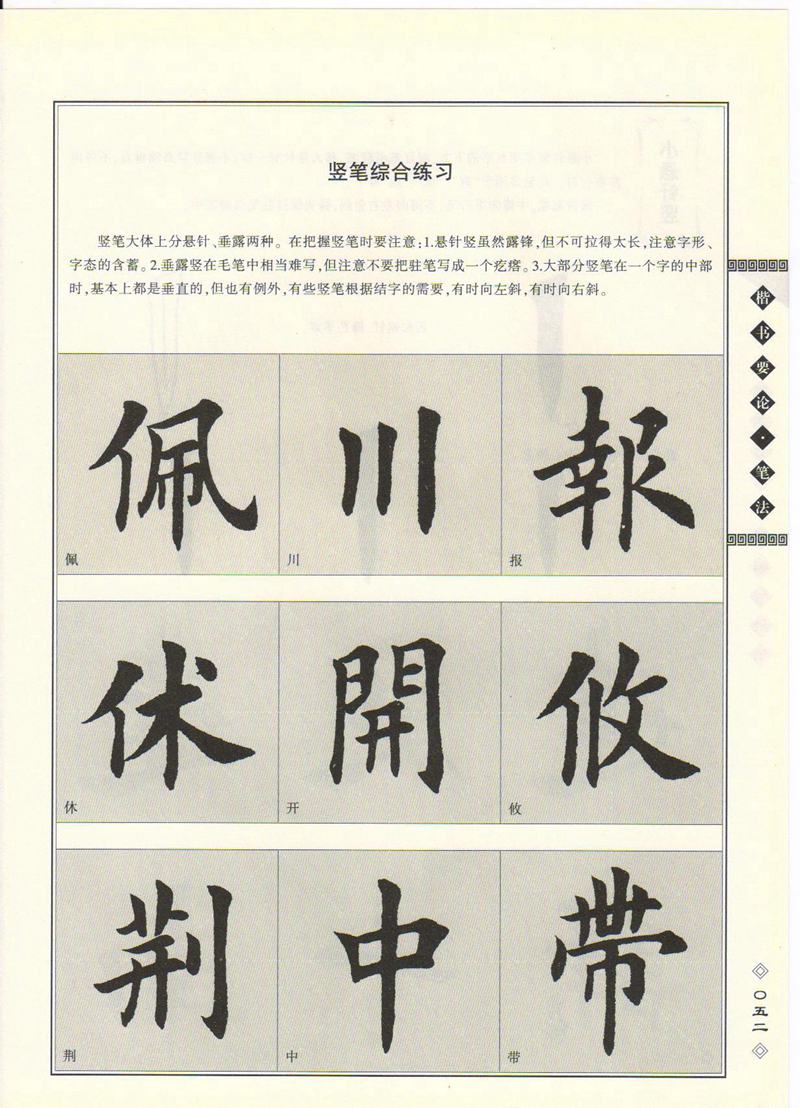 竖笔综合练习
竖笔大体上分悬针、垂露两种。在把握竖笔时要注意:1.悬针竖虽然露锋,但不可拉得太长,注意字形、
字态的含蓄。2.垂露竖在毛笔中相当难写,但注意不要把驻笔写成一个疙瘩。3.大部分竖笔在一个字的中部
时,基本上都是垂直的,但也有例外,有些竖笔根据结字的需要,有时向左斜,有时向右斜。
佩 川 報
佩 川 报
休 開 攸
休 开 攸
荆 中 帶
荆 中 带
楷书要论·笔法
〇五二